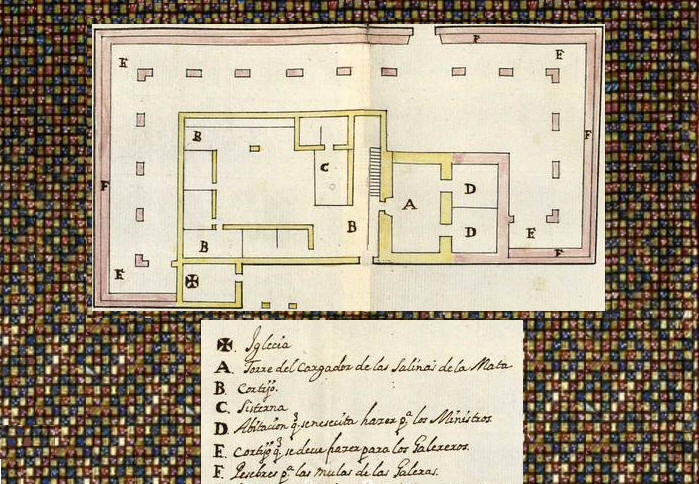 F
E E
B F
C
F D
A
B D E
B
E F
✠
✠. Iglecia
A. Torre del Cargador de las Salinas de la Mata
B. Cortijo.
C. Sisterna
D. Abitacion q.^e se nesecita hazer p.^a los Ministros
E. Cortijo q.^e se deve hazer para los Galereros.
F. Pesebres p.^a las mulas de las Galeras.